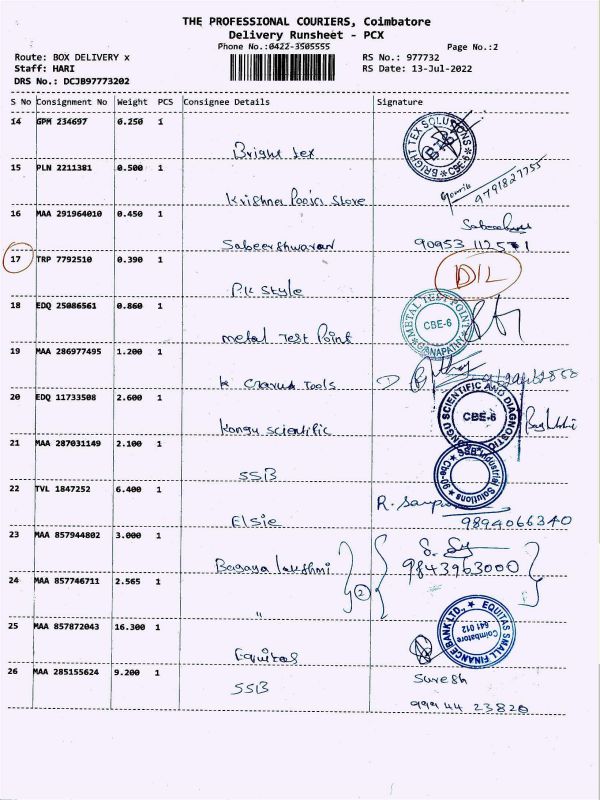 THE PROFESSIONAL COURIERS, Coimbatore
Delivery Runsheet - PCX
Phone No.:0422-3505555
Page No.:2
Route: BOX DELIVERY x
RS No.: 977732
Staff: HARI
RS Date: 13-Jul-2022
DRS No.: DCJB97773202
S No Consignment No Weight PCS Consignee Details Signature
14 GPM 234697 0.250 1
BRIGHT TEX SOLUTIONS
CBE-6
Bright tex
15 PLN 2211381 0.500 1
Krishna Pooja Store
9791827755
16 MAA 291964010 0.450 1
Sabeershwaran
90953 11251
17 TRP 7792510 0.390 1
P.K Style
D/L
18 EDQ 25086561 0.860 1
METAL TEST POINT
CBE-6
GANAPATHY
metal Test Point
19 MAA 286977495 1.200 1
Tools
20 EDQ 11733508 2.600 1
KONGU SCIENTIFIC AND DIAGNOSTIC
CBE-6
Kongu scientific
21 MAA 287031149 2.100 1
SSB Industrial Solutions
Cbe-06
SSB
22 TVL 1847252 6.400 1
Elsie
R.
9894066340
23 MAA 857944802 3.000 1
Bagaya lakshmi
9843963000
24 MAA 857746711 2.565 1
2
"
25 MAA 857872043 16.300 1
EQUITAS SMALL FINANCE BANK LTD.,
Coimbatore
641 012
Equitas
26 MAA 285155624 9.200 1
SSB
Suresh
99944 23820